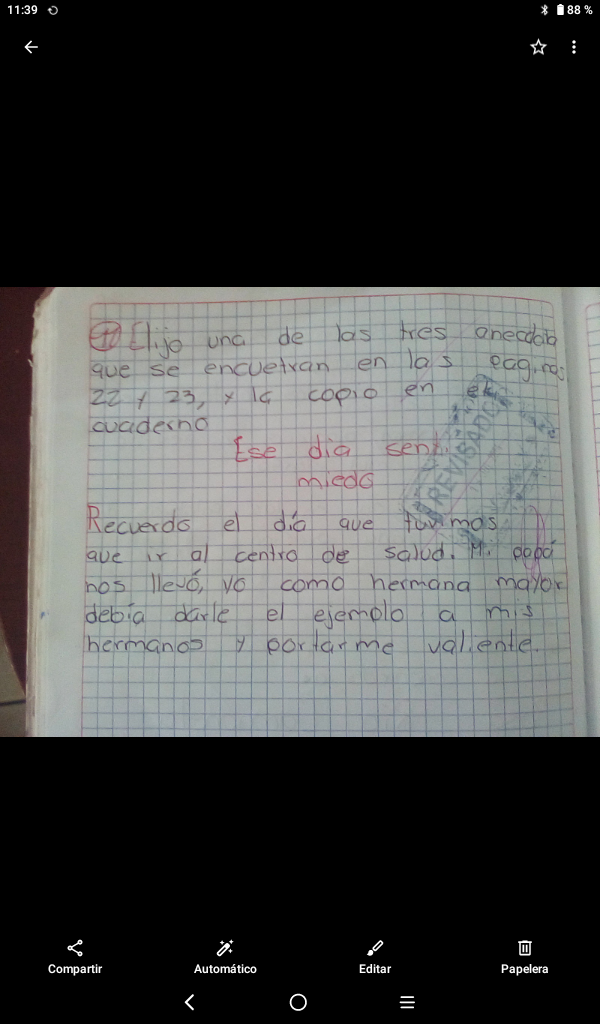 11:39
88 %
Elijo una de las tres anecdota
que se encuetran en las pagina:
22 y 23, y la copio en el
cuaderno
REVISADO
Ese dia sentí
miedo
Recuerdo el día que tuvimos
que ir al centro de salud. Mi papá
nos llevó, yo como hermana mayor
debía darle el ejemplo a mis
hermanos y portarme valiente.
Compartir
Automático
Editar
Papelera